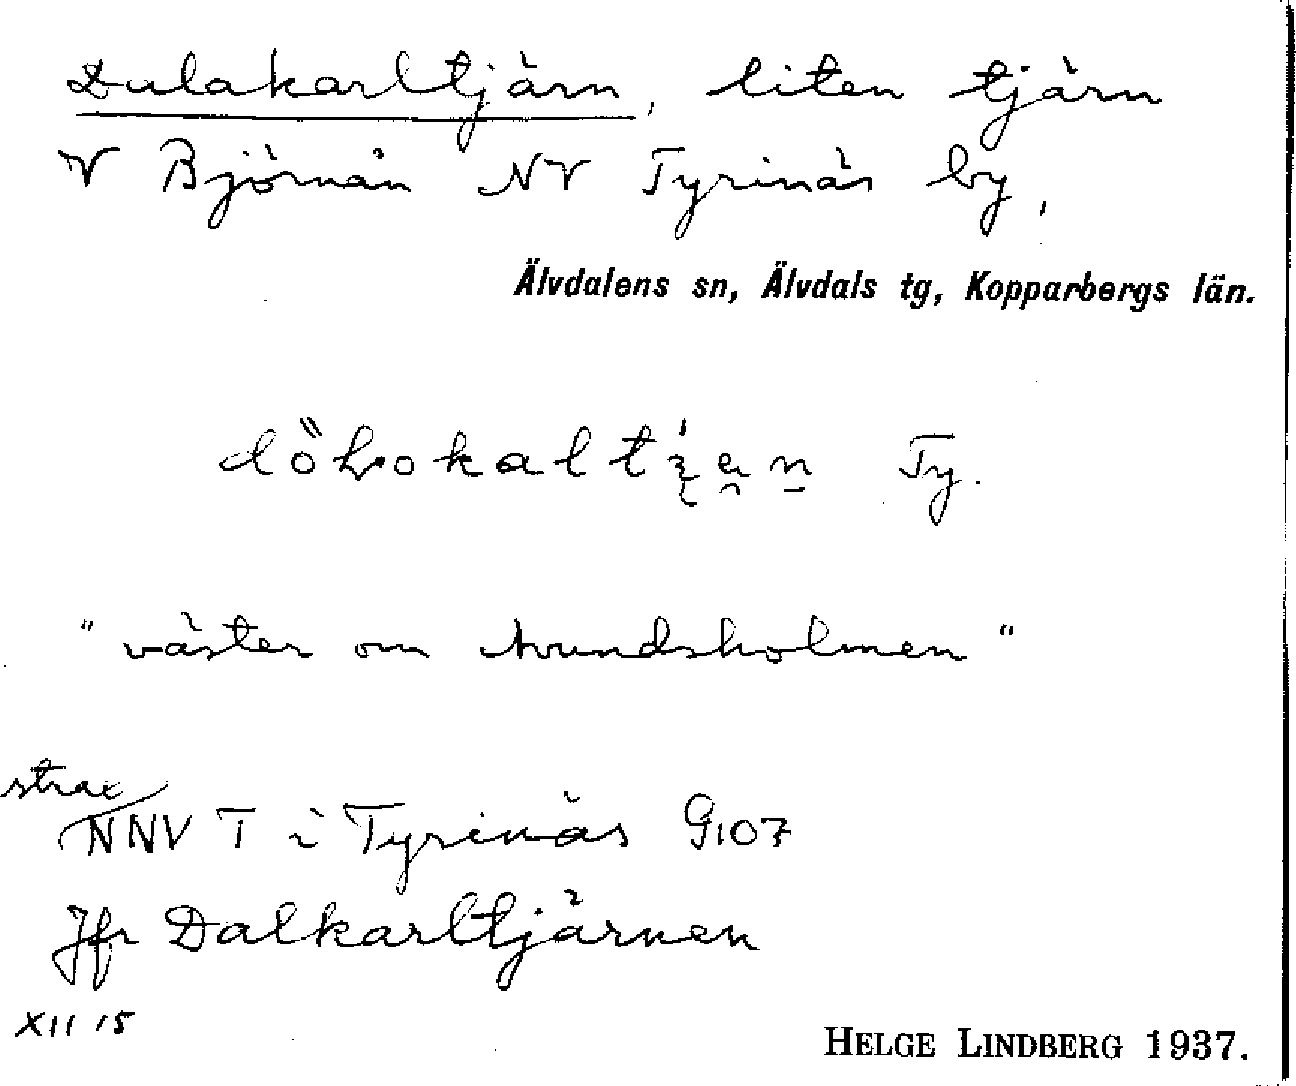 Dulakarltjärn, liten tjärn
V Björnån NV Tyrinäs by,
Älvdalens sn, Älvdals tg, Kopparbergs län.
Ty.
"väster om Avundsholmen"
strax
NNV T i Tyrinäs 9107
Jfr Dalkarltjärnen
XII 15
HELGE LINDBERG 1937.